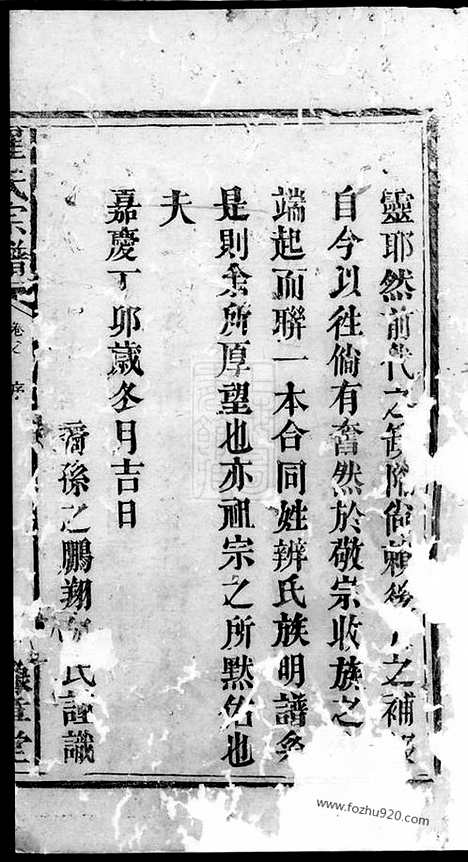 靈耶然前代之缺陷尙賴後之補
自今以往倘有奮然於敬宗收族之
端起而聯一本合同姓辨氏族明譜
是則余所厚望也亦祖宗之所默佑也
夫
嘉慶丁卯歲冬月吉日
裔孫之鵬翔氏謹識
氏宗譜
卷之 序
堂
www.fozhu920.com